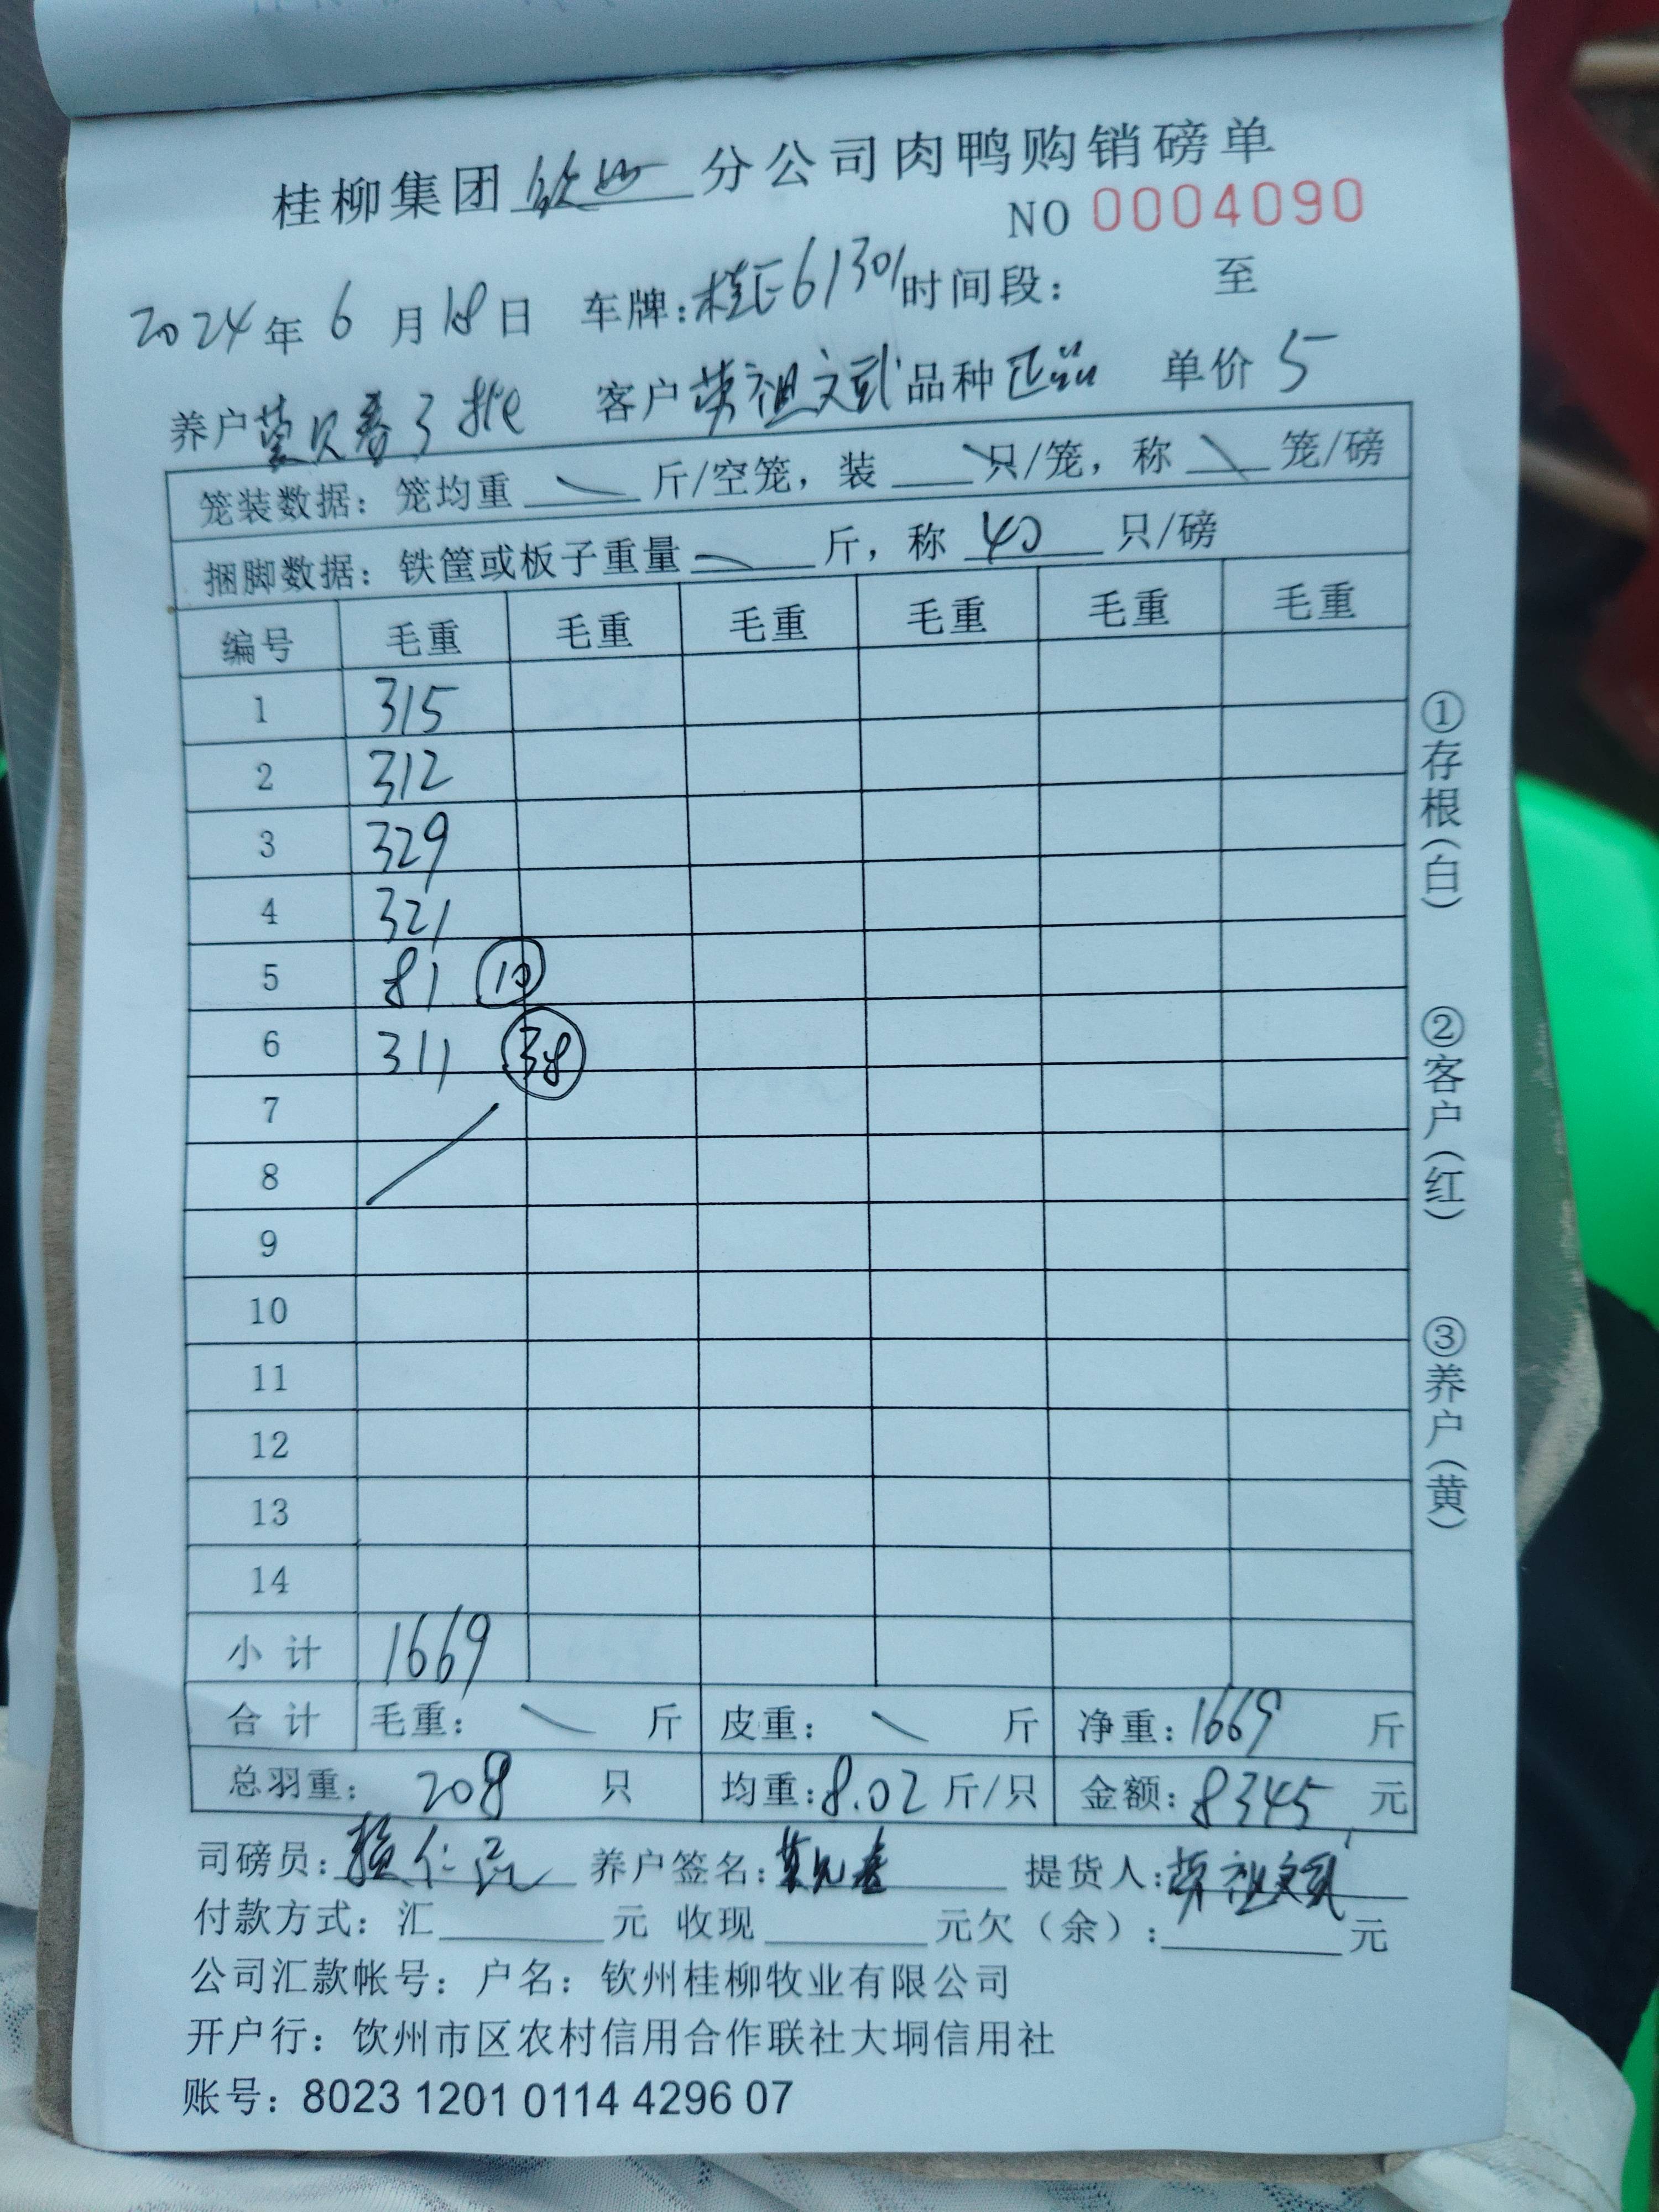 桂柳集团 钦州 分公司肉鸭购销磅单
NO 0004090
2024年 6 月 18日 车牌:桂E61301 时间段: 至
养户 春3批 客户 祖文武 品种 正品 单价 5
笼装数据: 笼均重 斤/空笼, 装 只/笼, 称 笼/磅
捆脚数据: 铁筐或板子重量 斤, 称 40 只/磅
编号 毛重 毛重 毛重 毛重 毛重 毛重
1 315
2 312
3 329
4 321
5 81 10
6 311 38
7
8
9
10
11
12
13
14
小计 1669
合计 毛重: 斤 皮重: 斤 净重: 1669 斤
总羽重: 208 只 均重: 8.02 斤/只 金额: 8345 元
司磅员: 养户签名: 提货人: 祖文武
付款方式: 汇 元 收现 元欠(余): 元
公司汇款帐号: 户名: 钦州桂柳牧业有限公司
开户行: 钦州市区农村信用合作联社大垌信用社
账号: 8023 1201 0114 4296 07
①存根(白)
②客户(红)
③养户(黄)